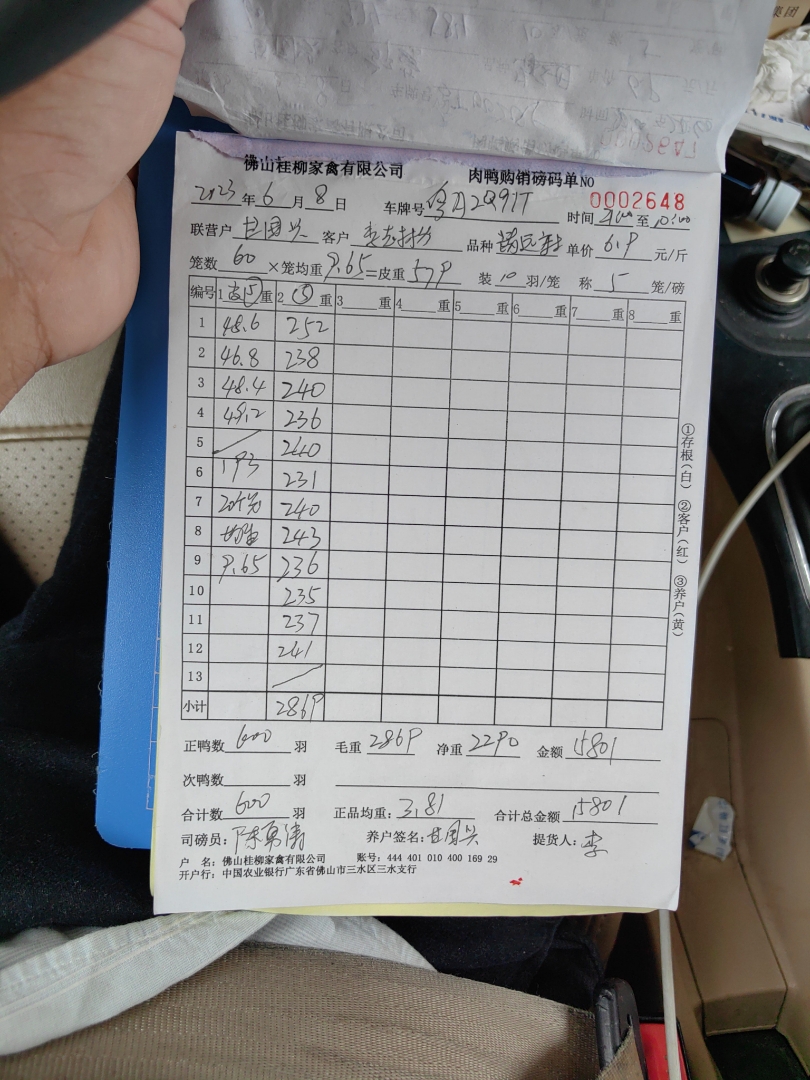 集团
佛山桂柳家禽有限公司 肉鸭购销磅码单NO 0002648
2023年6月8日 车牌号粤A2Q91T 时间 至10:00
联营户甘国兴 客户 品种 单价6.9元/斤
笼数60×笼均重9.65=皮重579 装10羽/笼 称5笼/磅
编号 1 皮⑤ 重 2 ⑤ 重 3 重 4 重 5 重 6 重 7 重 8 重
1 48.6 252
2 46.8 238
3 48.4 240
4 49.2 236
5 240
6 193 231
7 20个笼 240
8 243
9 9.65 236
10 235
11 237
12 241
13
小计 2869
正鸭数600羽 毛重2869 净重2290 金额15801
次鸭数 羽
合计数600羽 正品均重:3.81 合计总金额15801
司磅员:陈勇涛 养户签名:甘国兴 提货人:李
户 名:佛山桂柳家禽有限公司 账号:444 401 010 400 169 29
开户行:中国农业银行广东省佛山市三水区三水支行
①存根(白) ②客户(红) ③养户(黄)